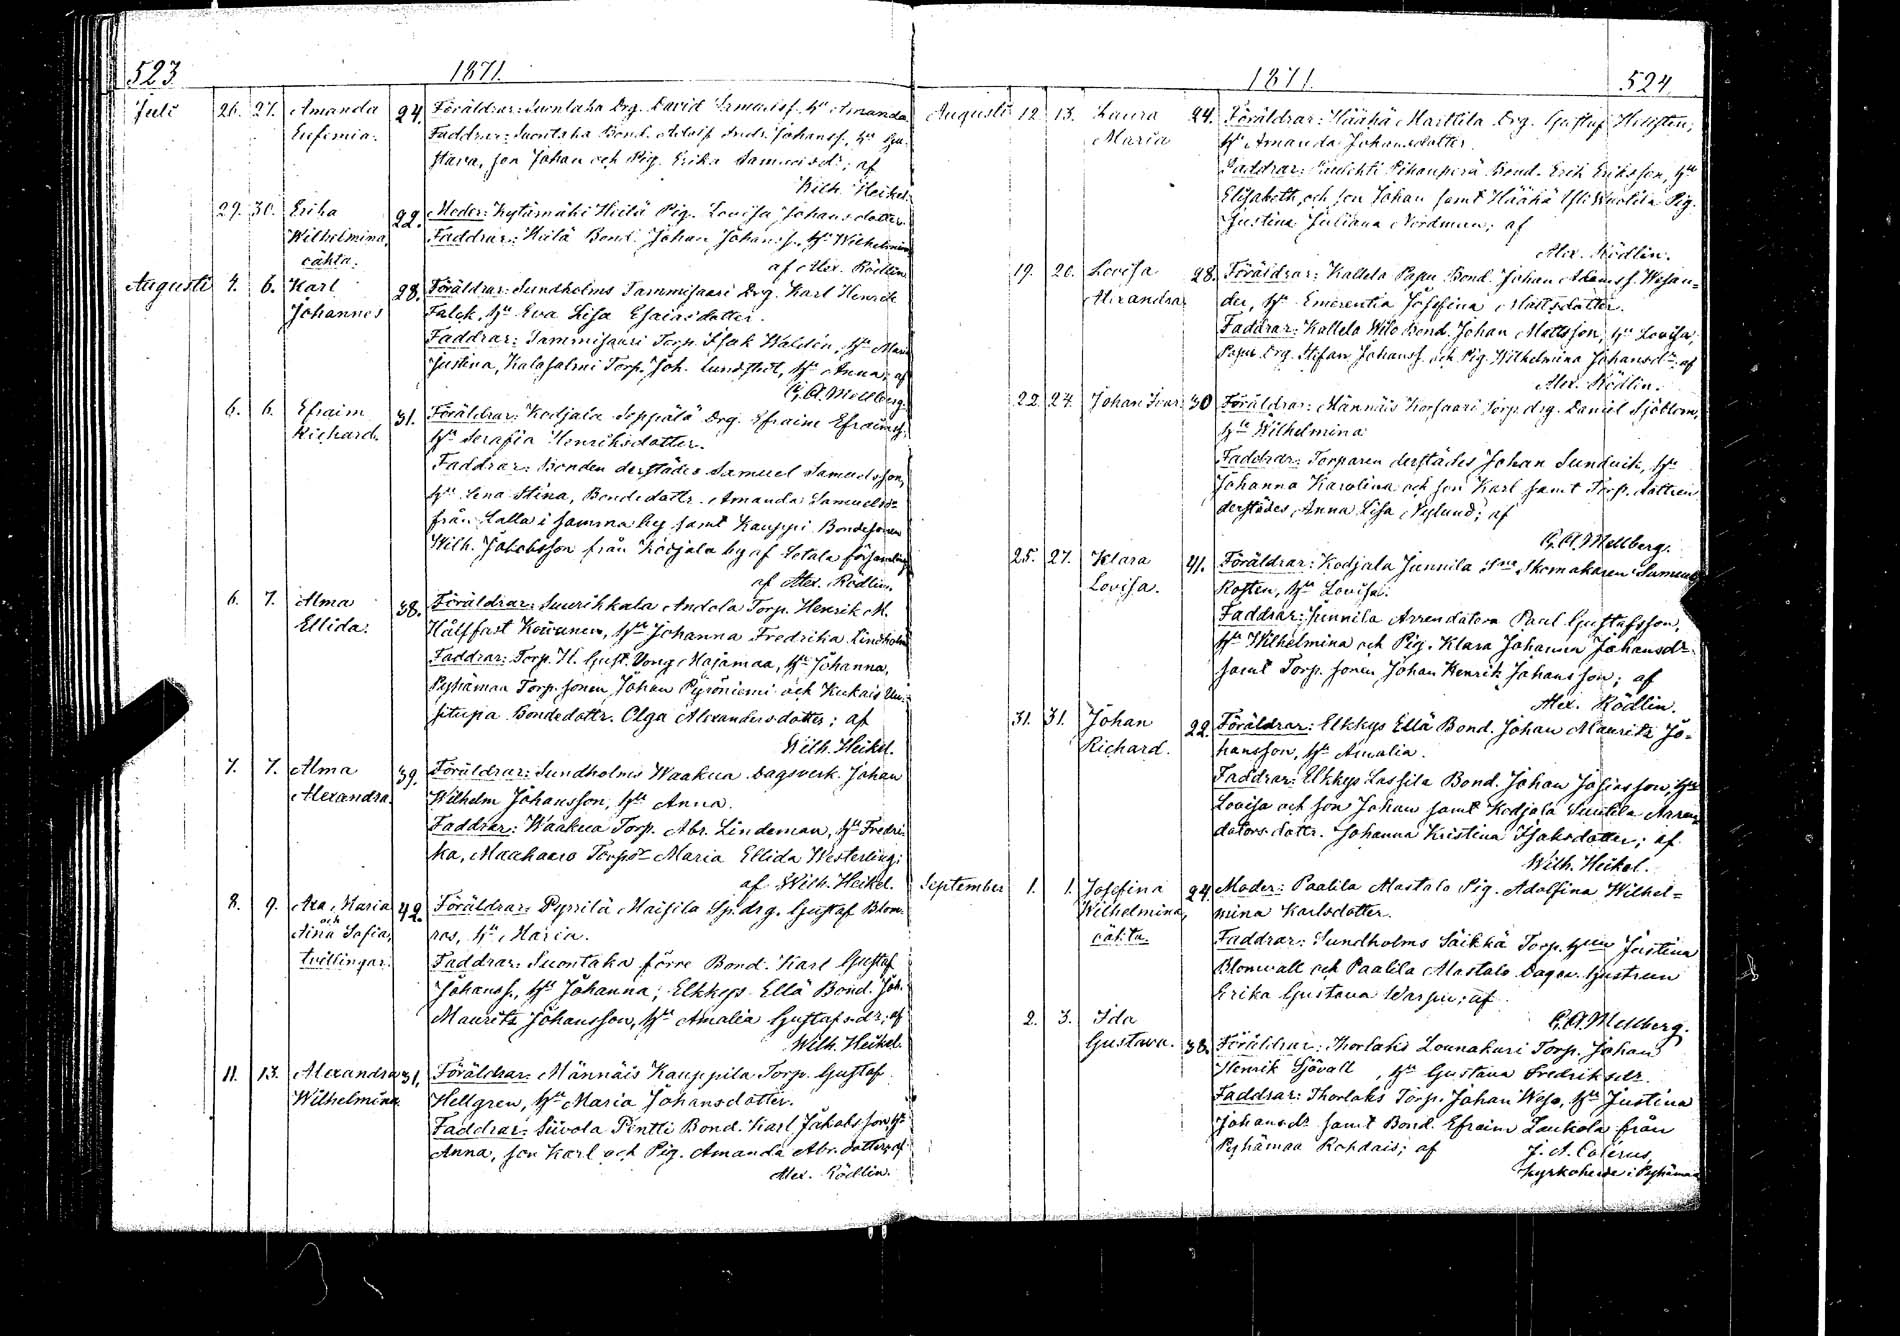 523. 1871.
Juli 26. 27. Amanda 24. Föräldrar: Suontaka Drg. David hu Amanda
Eufemia. Faddrar: Suontaka Bond. Adolf Andr. Johansf., hu Gu-
stava, son Johan och Pig. Erika af
Wilh. Heikel.
29. 30. Erika 22. Moder: Kytämäki Heilä Pig. Lovisa Johansdotter
Wilhelmina, Faddrar: Heilä Bond. Johan Johansf., hu Wilhelmina
oäkta. af Alex. Rödlin
Augusti 4. 6. Karl 28. Föräldrar: Sundholms Tammisaari Drg. Karl Henrik
Johannes Falck, hu Eva Lisa Esaiasdotter.
Faddrar: Tammisaari Torp. Isak Waldén, hu Maria
Justina, Kalasalmi Torp. Joh. Lundstedt, hu Anna; af
G. A. Mellberg.
6. 6. Efraim 31. Föräldrar: Kodjala Seppälä Drg. Efraim Efraimsf.
Richard. hu Serafia Henriksdotter.
Faddrar: Bonden derstädes Samuel Samuelsson,
hu Lena Stina, Bondedottr. Amanda Samuelsdr
från Lalla i samma by samt Kauppi Bondesonen
Wilh. Jakobsson från Kodjala by af Letala församling
af Alex. Rödlin.
6. 7. Alma 38. Föräldrar: Suurikkala Andola Torp. Henrik M.
Ellida. Hållfast Kouunen, hu Johanna Fredrika Lindholm
Faddrar: Torp. H. Gust. Vong Majamaa, hu Johanna,
Pyhämaa Torp. sonen Johan Pyröniemi och Kukais Uu-
situpa Bondedottr. Olga Alexandersdotter; af
Wilh. Heikel.
7. 7. Alma 39. Föräldrar: Sundholms Waakua Dagsverk. Johan
Alexandra. Wilhelm Johansson, hu Anna.
Faddrar: Waakua Torp. Abr. Lindeman, hu Fredri-
ka, Maakaaro Torpdr Maria Ellida Westerling;
af Wilh. Heikel.
8. 9. Ada Maria 42. Föräldrar: Pyssilä Maisila Sp.drg. Gustaf Blom-
och
Aina Sofia, ros, hu Maria.
tvillingar. Faddrar: Suontaka förre Bond. Karl Gustaf
Johansf., hu Johanna; Elkkys Ellä Bond. Joh.
Mauritz Johansson, hu Amalia Gustafsdr; af
Wilh. Heikel.
11. 13. Alexandra 31. Föräldrar: Männäis Kauppila Torp. Gustaf
Wilhelmina. Hellgren, hu Maria Johansdotter.
Faddrar: Siivola Pentti Bond. Karl Jakobsson, hu
Anna, son Karl och Pig. Amanda Abr.dotter; af
Alex. Rödlin.
1871. 524.
Augusti 12. 13. Laura 24. Föräldrar: Häähä Marttila Drg. Gustaf Hellsten,
Maria hu Amanda Johansdotter.
Faddrar: Bond. Erik Eriksson, hu
Elisabeth, och son Johan samt Häähä Pig.
Justina Juliana Nordman; af
Alex. Rödlin.
19. 20. Lovisa 28. Föräldrar: Kallela Papu Bond. Johan Adamsf. Wesan-
Alexandra der, hu Emerentia Josefina Mattsdotter.
Faddrar: Kallela Wilo Bond. Johan Mattsson, hu Lovisa,
Papu Drg. Stefan Johansf. och Pig. Wilhelmina Johansdr af
Alex. Rödlin.
22. 24. Johan Ivar. 30 Föräldrar: Männäis Korsaari Torp.drg. Daniel Sjöblom,
hu Wilhelmina
Faddrar: Torparen derstädes Johan Sundvik, hu
Johanna Karolina och son Karl samt Torp. dottren
derstädes Anna Lisa Nylund; af
G. A. Mellberg.
25. 27. Klara 41. Föräldrar: Kodjala Junnila Skomakaren Samuel
Lovisa. Rosten, hu Lovisa.
Faddrar: Junnila Arrendatorn Paul Gustafsson,
hu Wilhelmina och Pig. Klara Johanna Johansdr.
samt Torp. sonen Johan Henrik Johansson; af
Alex. Rödlin.
31. 31. Johan 22. Föräldrar: Elkkys Ellä Bond. Johan Mauritz Jo-
Richard. hansson, hu Amalia.
Faddrar: Elkkys Lassila Bond. Johan Josiasson, hu
Lovisa och son Johan samt Kodjala Suutila Arren-
dators dottr. Johanna Kristina Isaksdotter; af
Wilh. Heikel.
September 1. 1. Josefina 24. Moder: Paalila Mastalo Pig. Adolfina Wilhel-
Wilhelmina, mina Karlsdotter.
oäkta. Faddrar: Sundholms Säikkä Torp. hun Justina
Blomvall och Paalila Mastalo Dagsv. hustrun
Erika Gustava Warsin; af
G. A. Mellberg.
2. 3. Ida
Gustava. 38. Föräldrar: Thorlaks Lounakari Torp. Johan
Henrik Sjövall, hu Gustava Fredriksdr.
Faddrar: Thorlaks Torp. Johan Wess, hu Justina
Johansdr samt Bond. Efraim Laukola från
Pyhämaa Rohdais; af J. A. Colérus,
Kyrkoherde i Pyhämaa